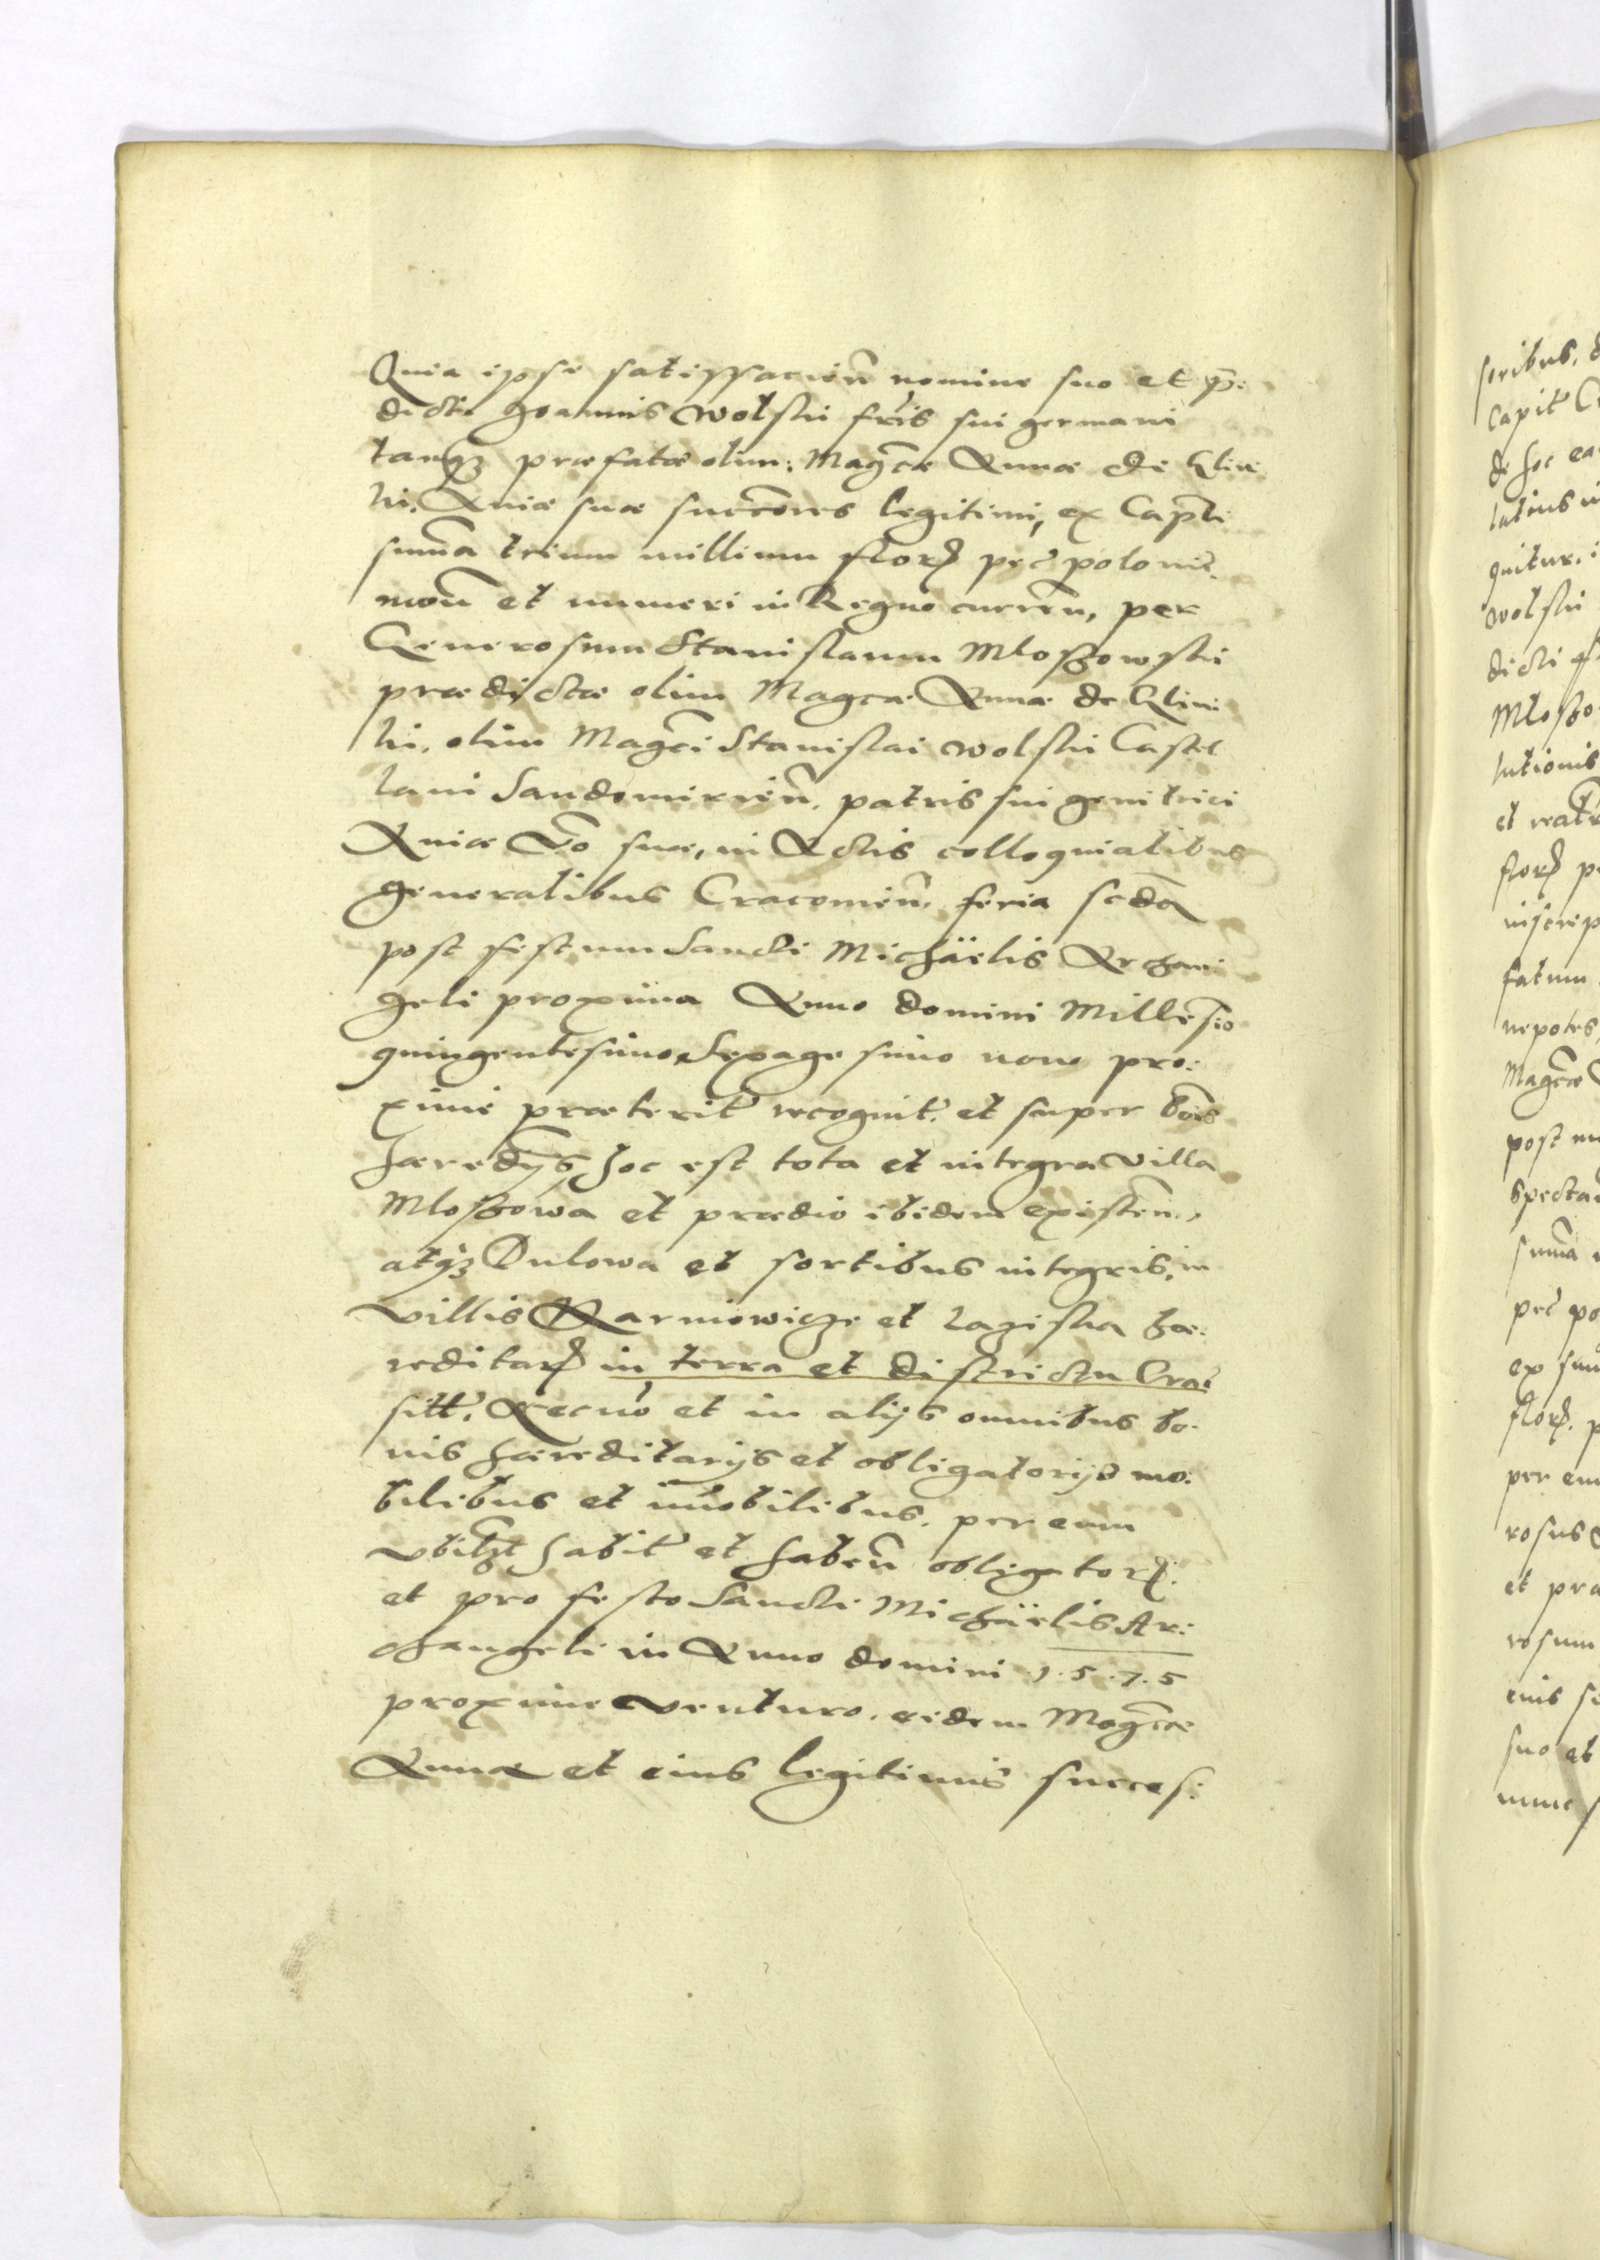 Quia ipse satisfacieñ nomine suo et p̃:
dicti Joannis Wolski fr̃is sui germani
tanqȝ præfatæ olim Mag̃cæ Annæ de
Auiæ suæ succ̃ores legitimi, ex Cap̃li
sum̃a trium millium flor pec̃ polonic̃
moñ et numeri in Regno curreñ, per
Generosum Stanislaum Mloszowski
prædictæ olim Magcæ Annæ de
ki, olim Mag̃ci Stanislai Wolski Castel
lani Sandomirieñ, patris sui genitrici
Auiæ ṽo suæ, in Actis colloquialibus
generalibus Cracouieñ, feria scđa
post festum Sancti Michäelis Archan
geli proxima Anno domini Millesĩo
quingentesimo Sexagesimo nono pro:
xime præterit̃ recognit̃. et super bõis
hæred̃ys, hoc est tota et integra villa
Mloszowa et prædio ibidem existeñ,
atqȝ Dulowa et sortibus integris, in
villis Karniowicze et Lagiska hæ:
reditar in terra et districtu Crac̃
sitt̃. Necno͂ et in alijs omnibus bo:
nis hæreditarijs et obligatorijs mo:
bilibus et im̃obilibus, per eum
vbilꝫt habit̃ et habeñ obligator:
et pro festo Sancti Michäelis Ar:
changeli in Anno domini 1.5.7.5
proxime venturo. eidem Mag̃cæ
Annæ et eius legitimis succes:
soribus,
Capit̃
de hoc
latius
quitur,
Wolski
dicti
Mloszo
lutionis
et
flor
inscrip
fatum
nepotes,
Mag̃cæ
post
specta
sum̃a
pec̃ po
ex sum
flor. p
per eun
rosus
et præ
rosum
eius
suo et
nunc